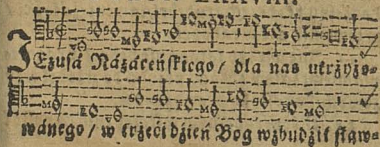 JEzusá Názáreńskiego / dla nas ukrzyżo-
wánego / w trzeći dźień Bog wzbudźił sław-